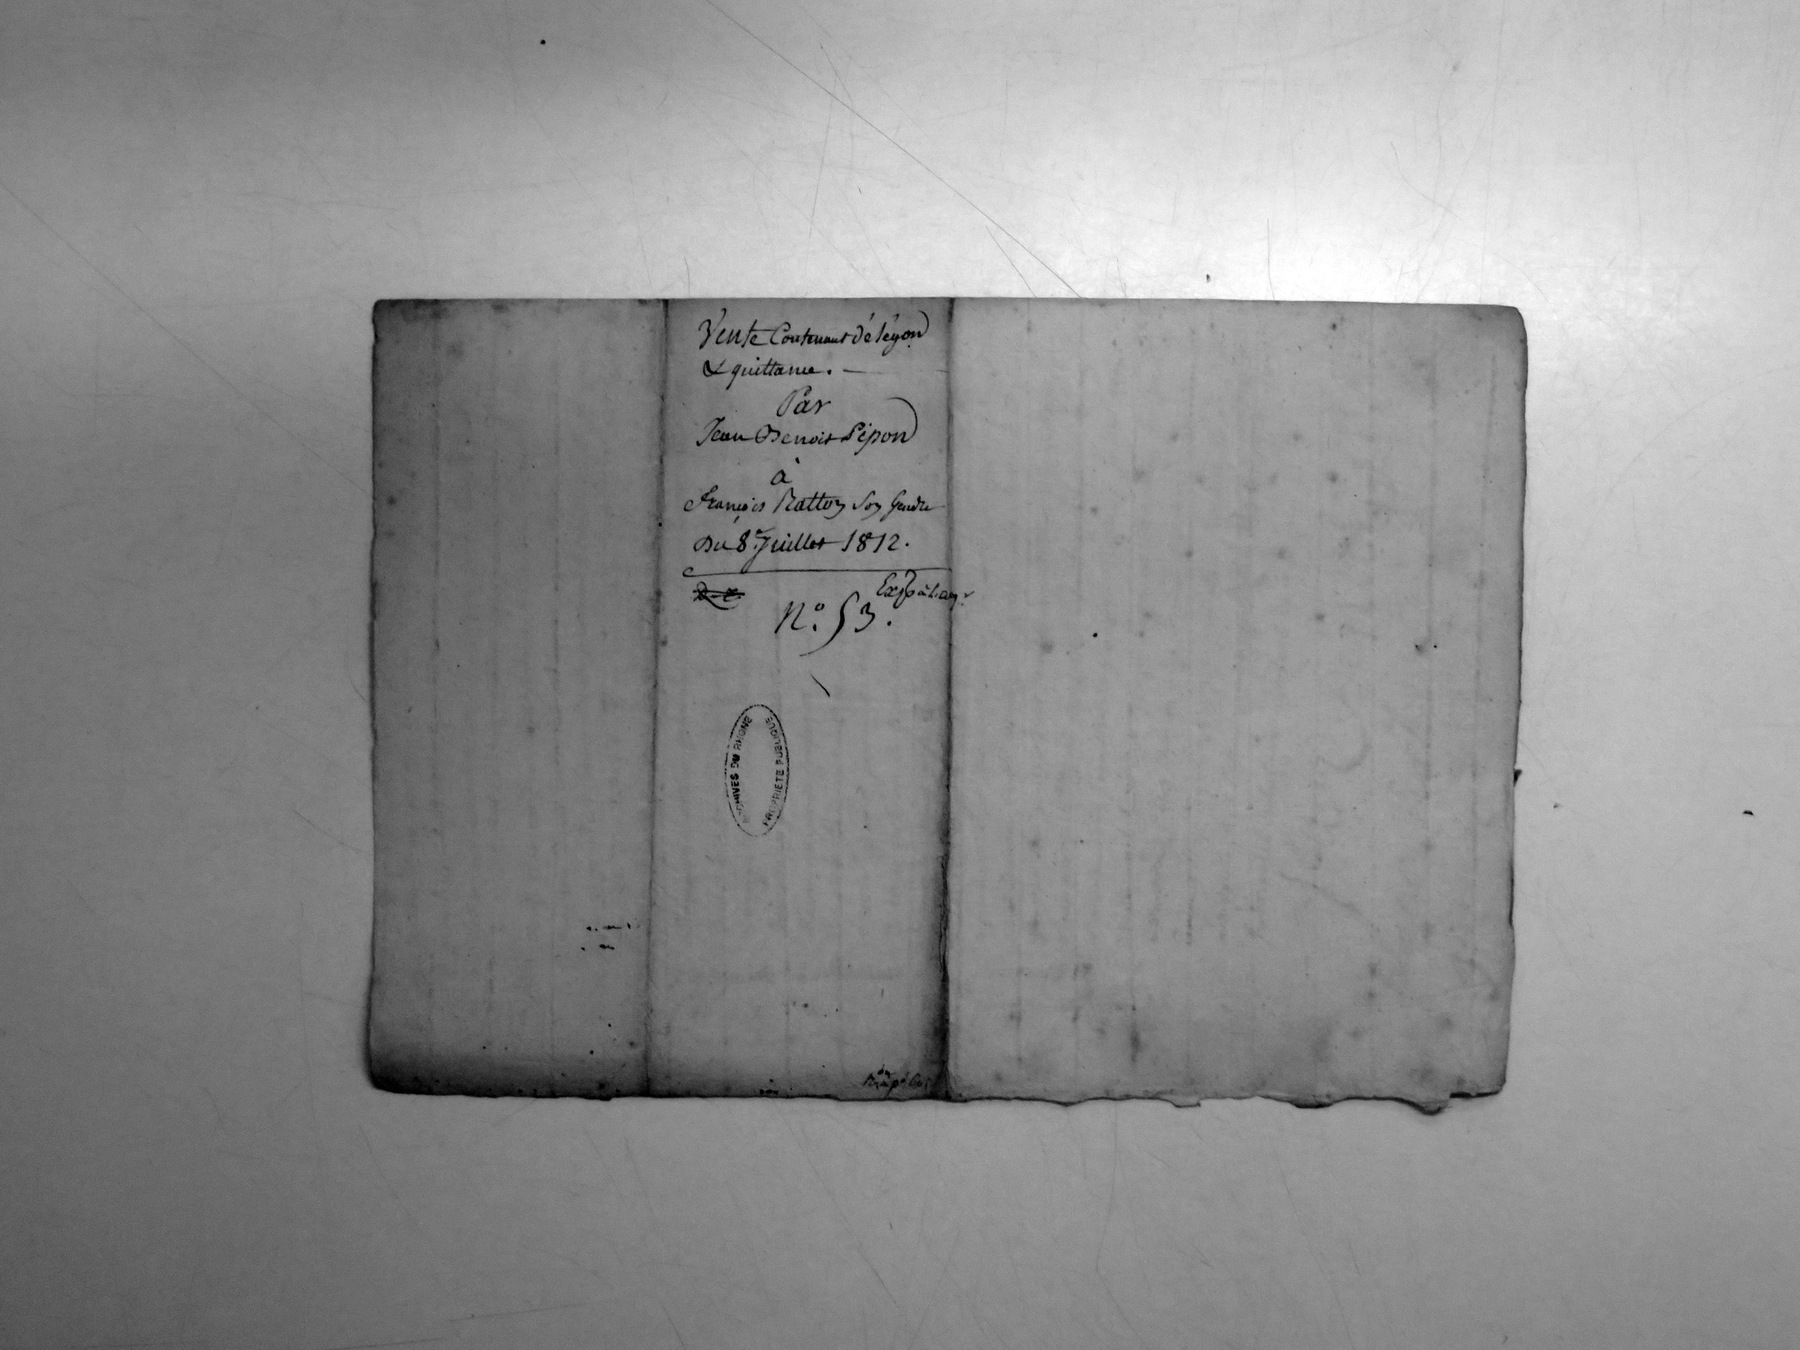 Vente Contenant délégon
& quittance. —
Par
Jean Benoit Pipon
à
François Ratton Son Gendre
Du 8e. Juillet 1812.
N.° 53.
ARCHIVES DU RHONE
PROPRIETE PUBLIQUE